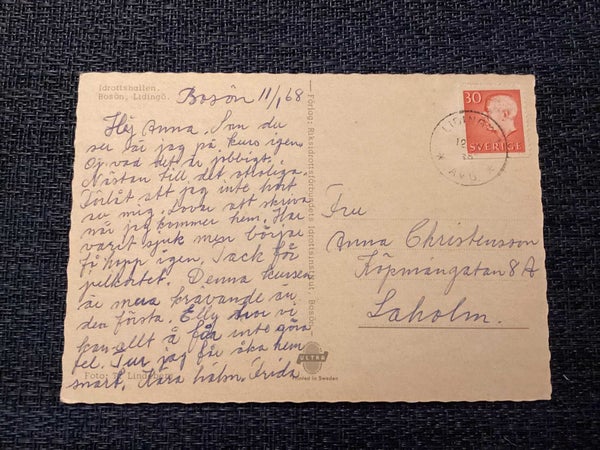 Idrottshallen.
Bosön, Lidingö.
Bosön 11/1 68
Hej Anna. Som du
ser är jag på kurs igen.
Oj vad det är jobbigt.
Nästan till det otroliga.
Förlåt att jag inte hört
av mig. Lovar att skriva
när jag kommer hem. Har
varit sjuk men börjar
få hopp igen. Tack för
julkortet. Denna kursen
är mera krävande än
den första. Elly tror vi
kan allt å får inte göra
fel. Tur jag får åka hem
snart. Kära hälsn. Frida
Foto: Lindeberg
Förlag: Riksidrottsförbundets Idrottsinstitut, Bosön.
ULTRA
Printed in Sweden
30
SVERIGE
LIDINGÖ
12
AVG
Fru
Anna Christensson
Köpmangatan 8 A
Laholm.